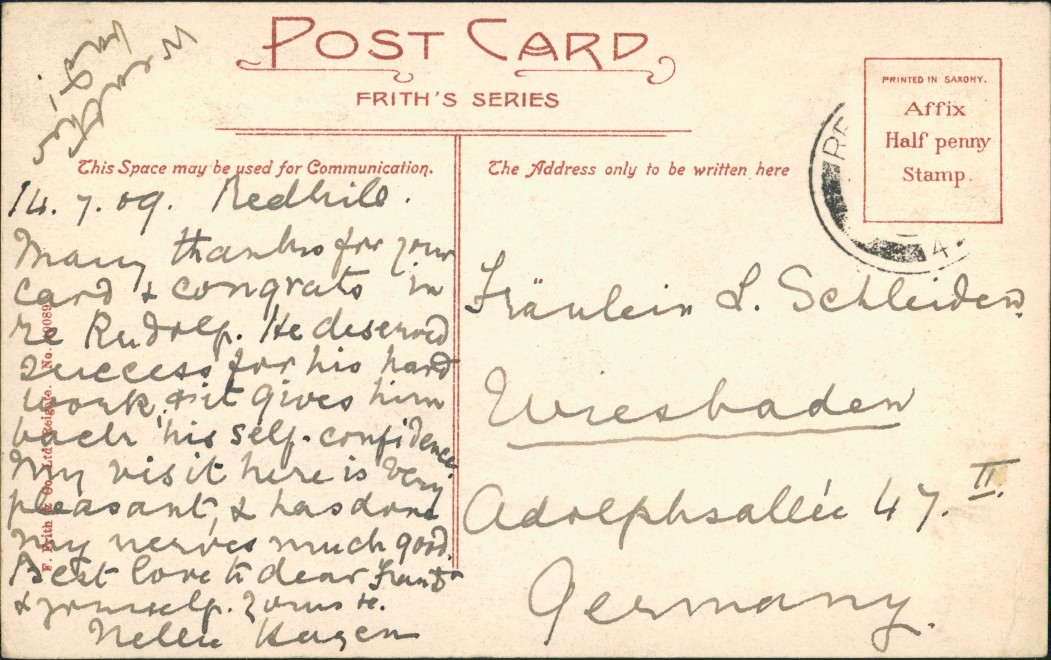 POST CARD
FRITH'S SERIES
PRINTED IN SAXONY.
Affix
Half penny
Stamp.
This Space may be used for Communication.
The Address only to be written here
14. 7. 09. Redhill.
Many thanks for your
card & congrats in
re Rudolf. He deserved
success for his hard
work, & it gives him
back his self-confidence.
My visit here is very
pleasant, & has done
my nerves much good.
Best love to dear
& yourself. Yours
Nellie Hagen
Fräulein L. Schleiden.
Wiesbaden
Adolphsallée 47. II.
Germany.
F. Frith & Co. Ltd. Reigate. No.
4